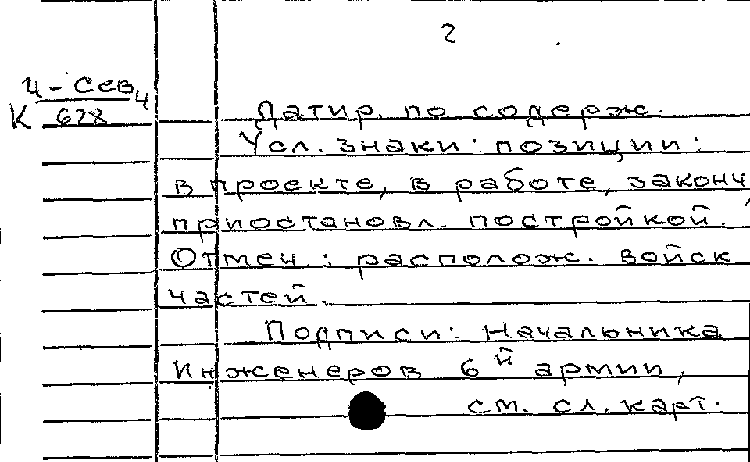 2
Ц-Сев
К 678 4
Датир. по содерж.
Усл. знаки: позиции:
в проекте, в работе, законч
приостановл. постройкой.
Отмеч: располож. войск
частей.
Подписи: Начальника
Инженеров 6й армии,
см. сл. карт.